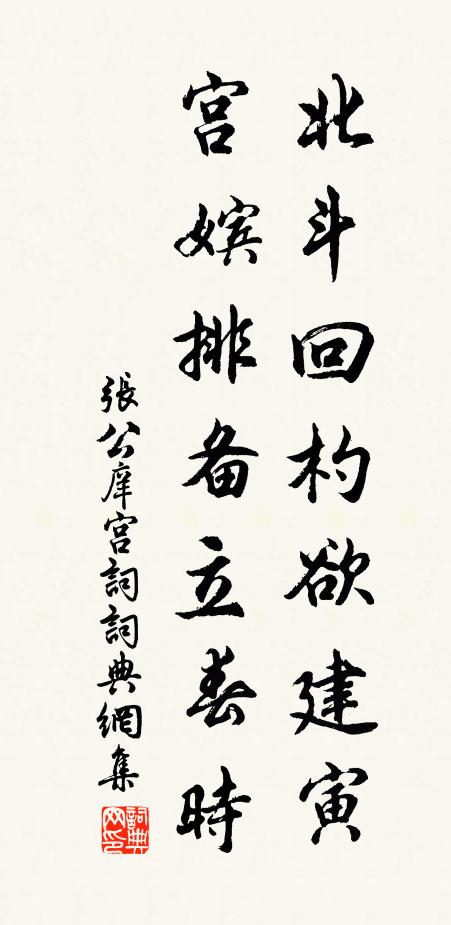 北斗回杓欲建寅
宫嫔排备立春時
張公庠宫詞詞典網集
詞典網印